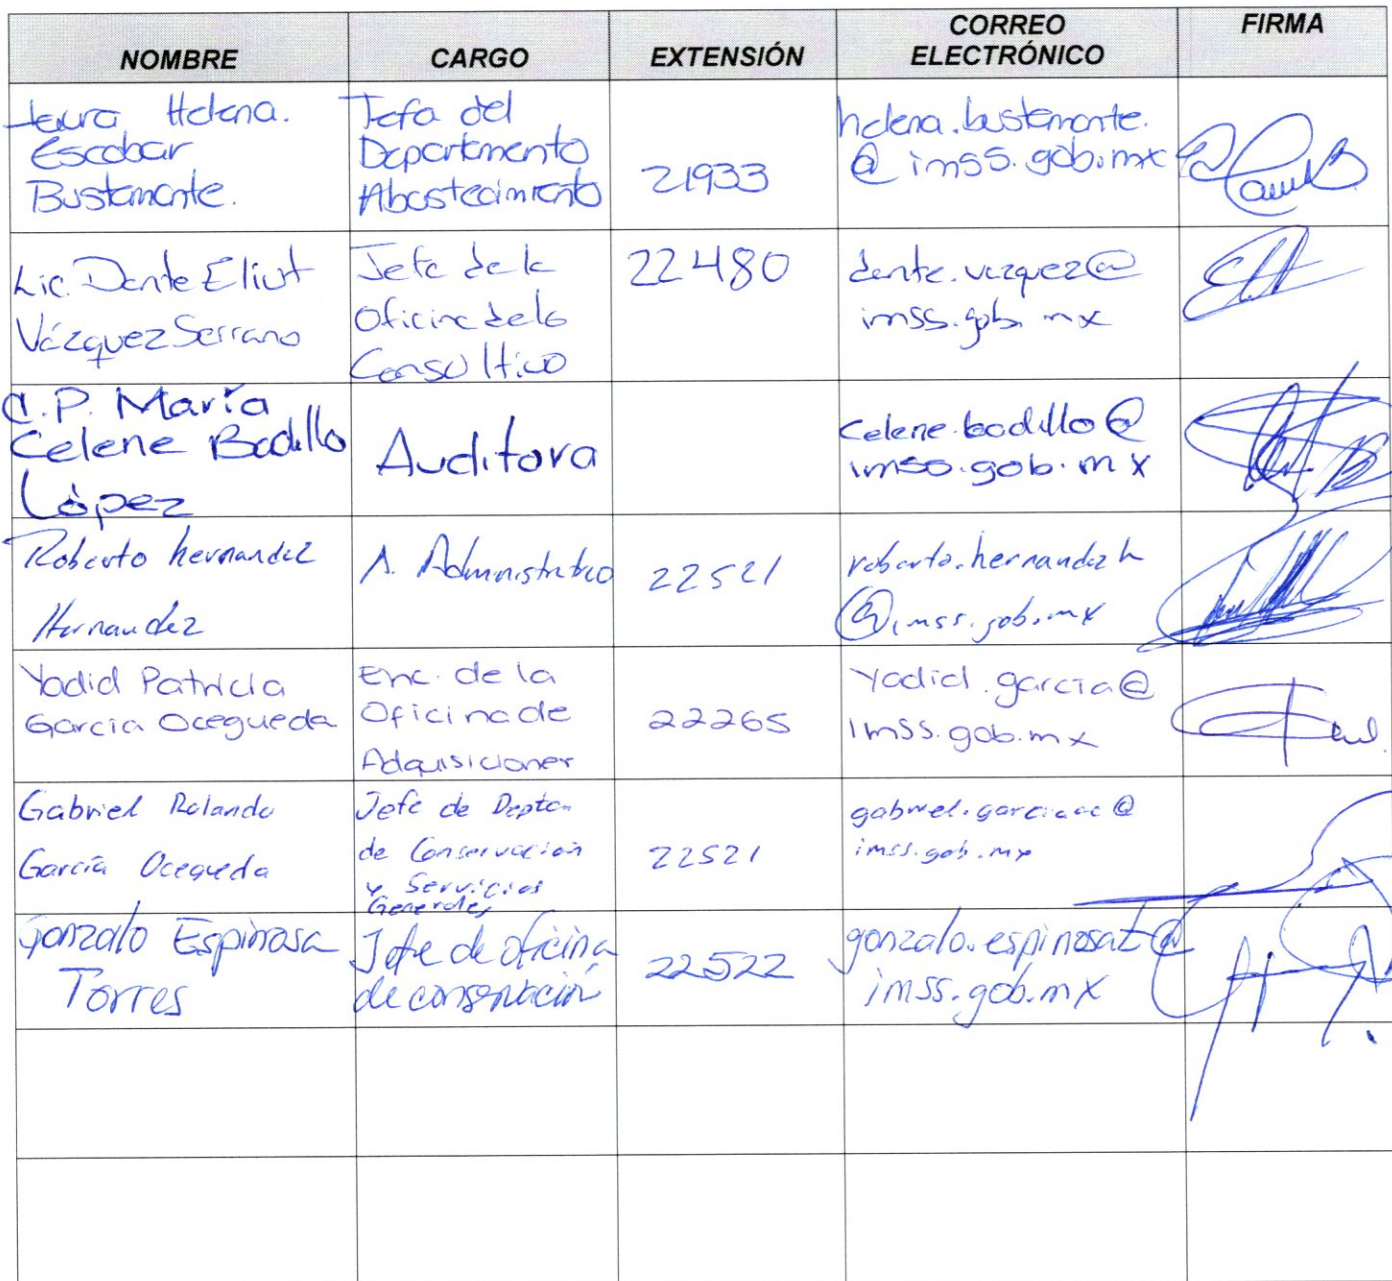 NOMBRE
CARGO
EXTENSIÓN
CORREO
ELECTRÓNICO
FIRMA
Laura Helena.
Escobar
Bustamante.
Jefa del
Departamento
Abastecimiento
21933
helena.bustamante.
@imss.gob.mx
Lic. Dante Eliut
Vázquez Serrano
Jefe de la
Oficina de lo
Consultivo
22480
dante.vazquez@
imss.gob.mx
C.P. María
Celene Badillo
López
Auditora
celene.badillo@
imss.gob.mx
Roberto hernandez
Hernandez
A. Administrativo
22521
roberto.hernandezh
@imss.gob.mx
Yadid Patricia
García Ocegueda
Enc. de la
Oficina de
Adquisiciones
22265
Yadid.garcia@
imss.gob.mx
Gabriel Rolando
García Ocegueda
Jefe de Depto.
de Conservación
y Servicios
Generales
22521
@
imss.gob.mx
Gonzalo Espinosa
Torres
Jefe de oficina
de conservación
22522
gonzalo.espinosat@
imss.gob.mx